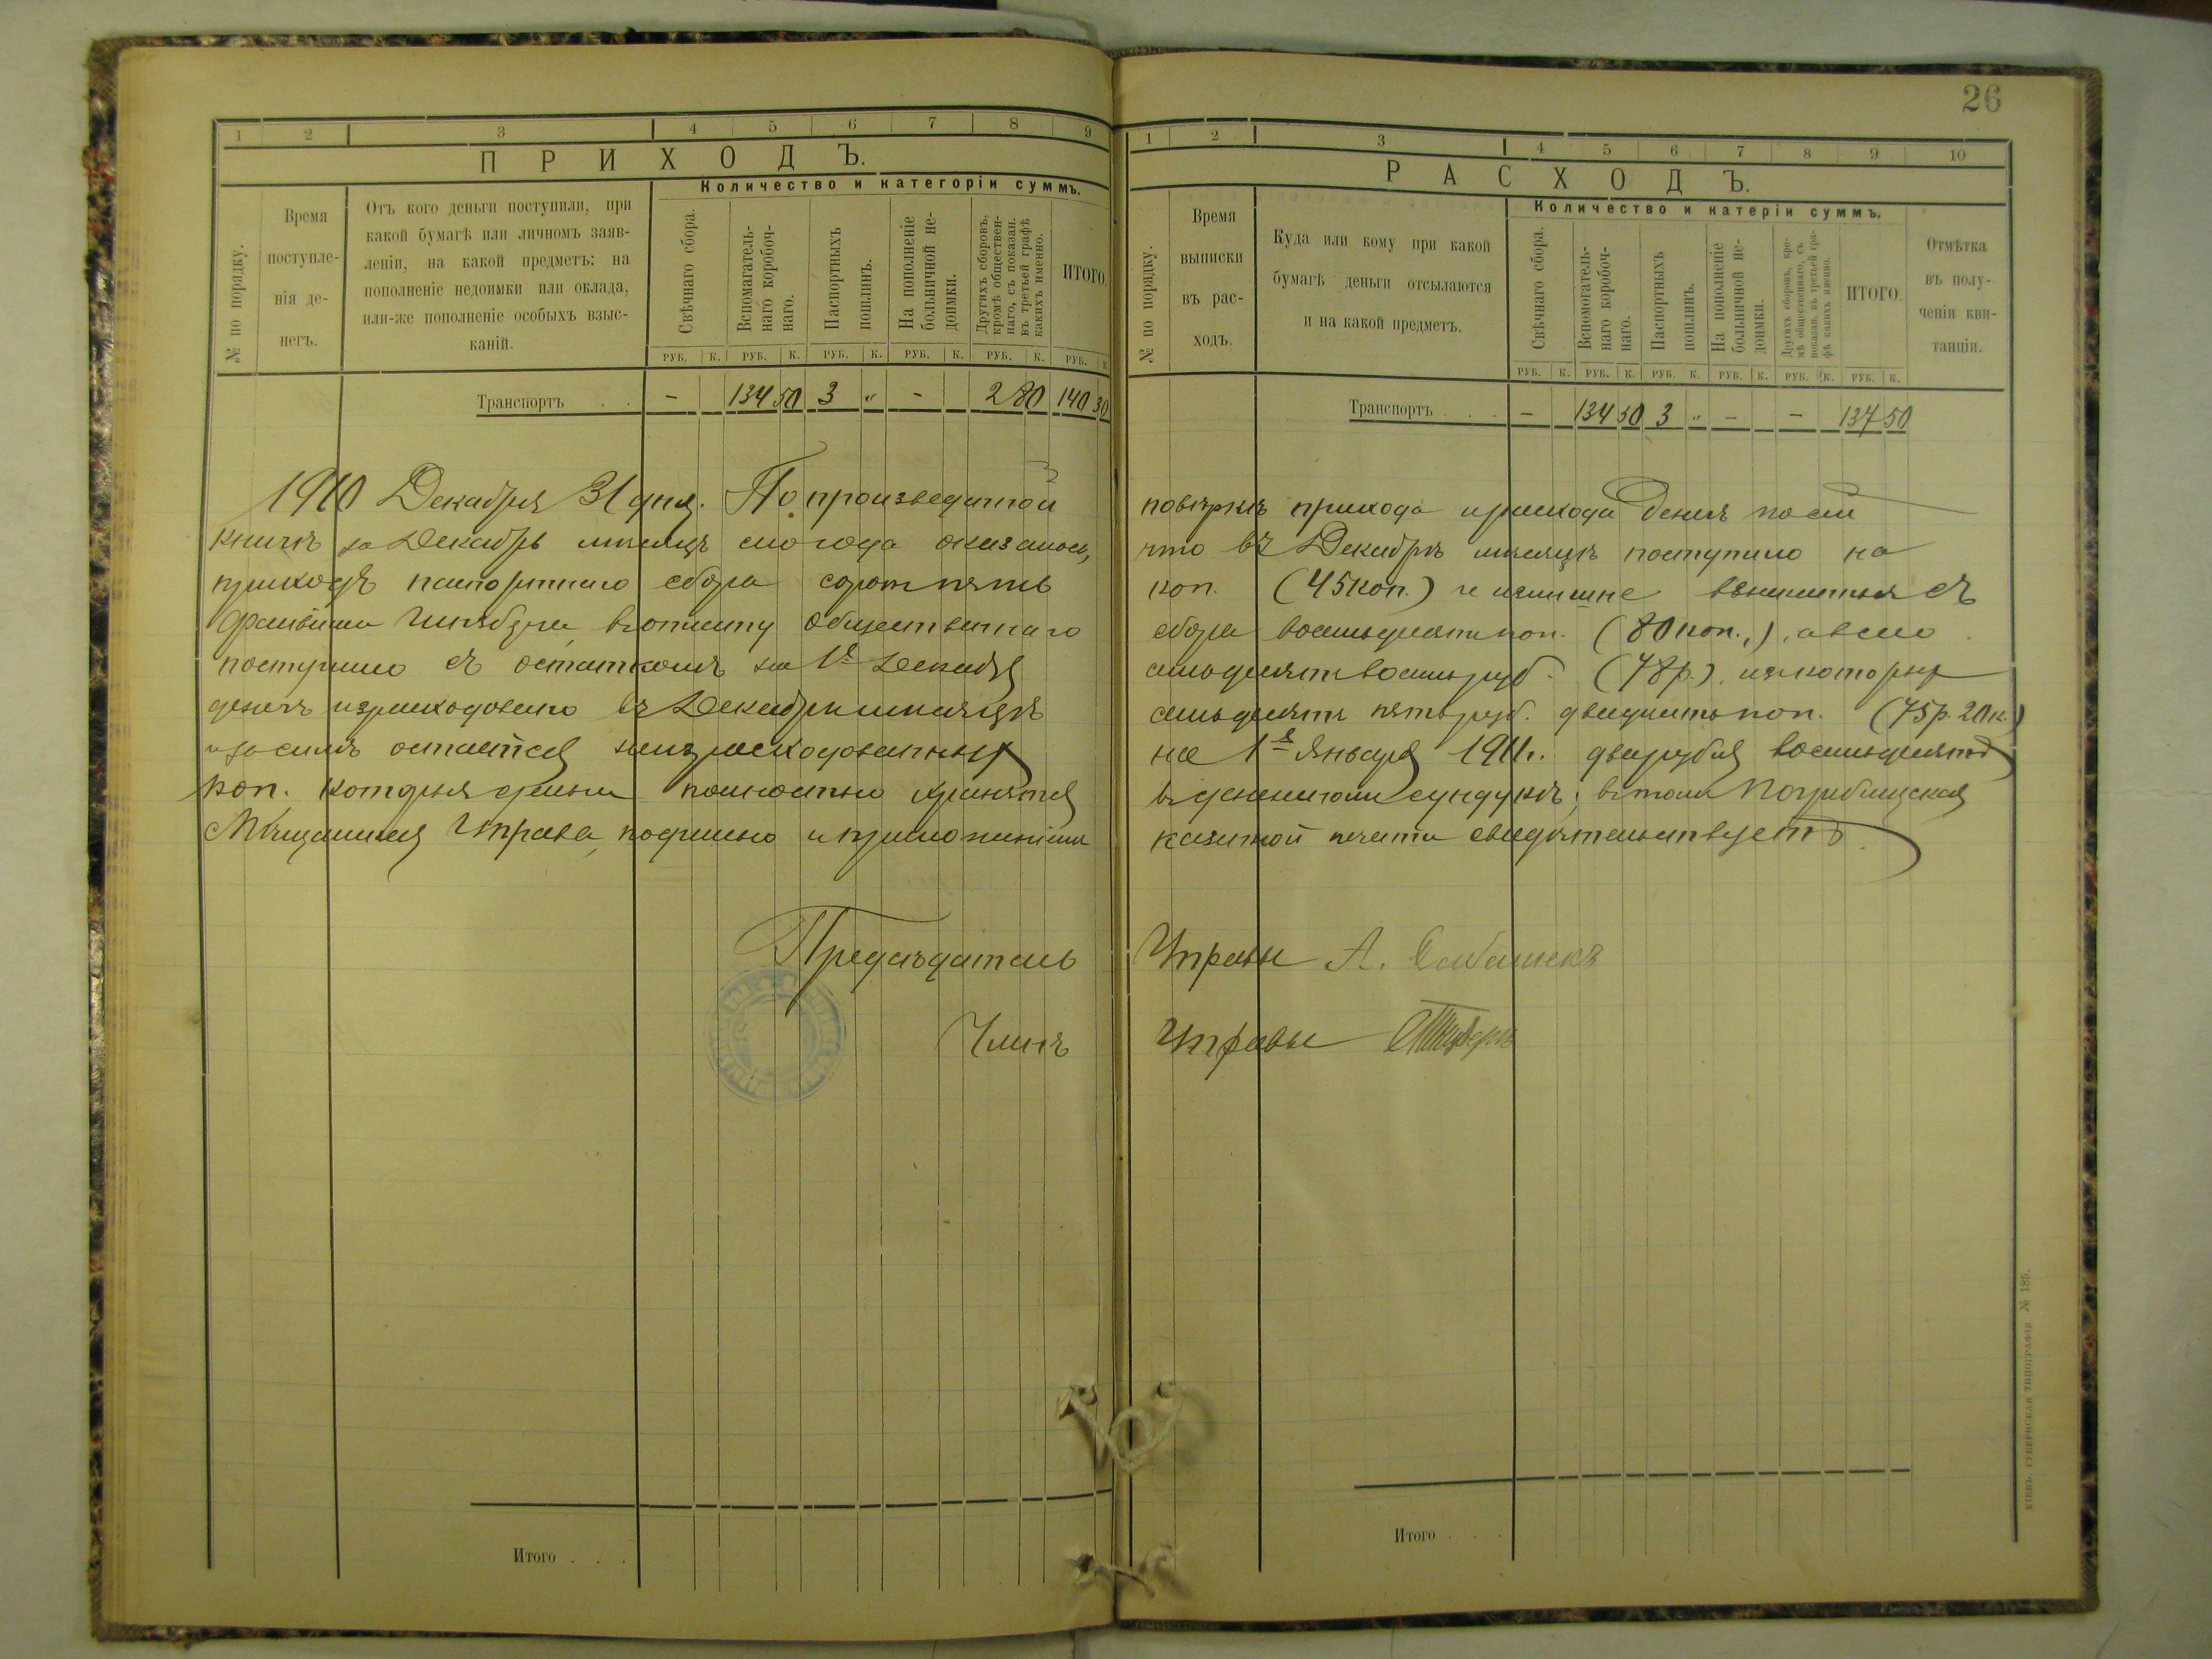 26
1 2 3 4 5 6 7 8 9
ПРИХОДЪ.
Количество и категоріи суммъ.
№ по порядку.
Время
поступле-
нія де-
негъ.
Отъ кого деньги поступили, при
какой бумагѣ или личномъ заяв-
леніи, на какой предметъ: на
пополненіе недоимки или оклада,
или-же пополненіе особыхъ взыс-
каній.
Свѣчнаго сбора.
Вспомагатель-
наго коробоч-
наго.
Паспортныхъ
пошлинъ.
На пополненіе
больничной не-
доимки.
Другихъ сборовъ,
кромѣ обществен-
наго, съ показан.
въ третьей графѣ
какихъ именно.
ИТОГО.
РУБ. К. РУБ. К. РУБ. К. РУБ. К. РУБ. К. РУБ. К.
Транспортъ . . - 134 50 3 " - 2 80 140 30
1910 Декабря 31 дня. По произведенной
книгѣ за Декабрь мѣсяцъ сего года оказалось,
приходъ паспортнаго сбора сорок пять
общественнаго
поступило съ остаткомъ на 1е Декабря
денегъ израсходовано въ Декабрѣ мѣсяцѣ
и засимъ остается неизрасходованныхъ
коп. которыя деньги полностью хранятся
Мѣщанская Управа, подписью и приложеніемъ
Предсѣдатель
Членъ
Итого . . .
1 2 3 4 5 6 7 8 9 10
РАСХОДЪ.
Количество и катеріи суммъ.
№ по порядку.
Время
выписки
въ рас-
ходъ.
Куда или кому при какой
бумагѣ деньги отсылаются
и на какой предметъ.
Свѣчнаго сбора.
Вспомогатель-
наго коробоч-
наго.
Паспортныхъ
пошлинъ.
На пополненіе
больничной не-
доимки.
Другихъ сборовъ, кро-
мѣ общественнаго, съ
показан. въ третьей гра-
фѣ какихъ именно.
ИТОГО.
Отмѣтка
въ полу-
ченіи кви-
танціи.
РУБ. К. РУБ. К. РУБ. К. РУБ. К. РУБ. К. РУБ. К.
Транспортъ . . . - 134 50 3 " - - 137 50
повѣркѣ прихода и расхода денегъ по сей
что въ Декабрѣ мѣсяцѣ поступило на
коп. (45 коп.) съ
сбора восемьдесят коп. (80 коп.), а всего
семьдесят восемь руб. (78 р.), изъ которых
семьдесят пять руб. двадцать коп. (75 р. 20 к.)
на 1е Января 1911 г. два рубля восемьдесят
въ денежном сундукѣ; въ том Погребищская
казенной печати свидѣтельствуетъ.
Управы А.
Управы
Итого . . .
КІЕВЪ. ГУБЕРНСКАЯ ТИПОГРАФІЯ № 185.